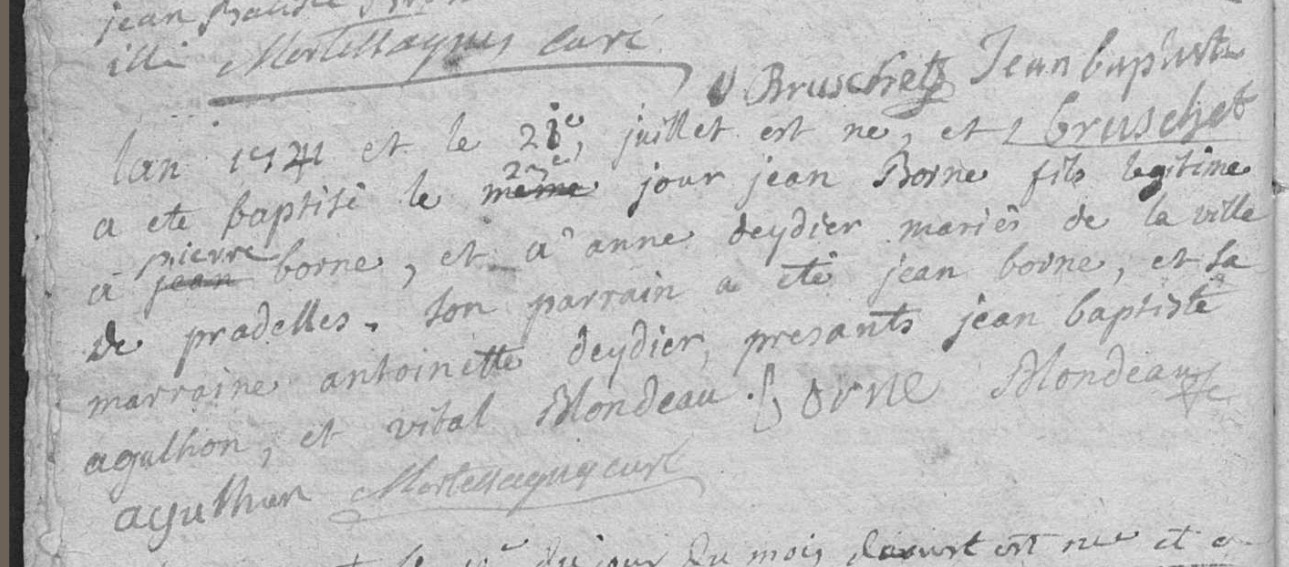 jean Baptiste
illi Mortesagnes curé
V Bruschetz Jean baptiste
lan 1741 et le 21e, juillet est ne, et bruschet
22e
a ete baptisé le même jour jean Borne fils legitime
pierre
a jean borne, et a anne deydier mariés de la ville
de pradelles. son parrain a été jean borne, et sa
marraine antoinette deydier, presants jean baptiste
agulhon, et vital Blondeau. borne Blondeau
agulhon Mortesagnes curé
du mois est nee et a